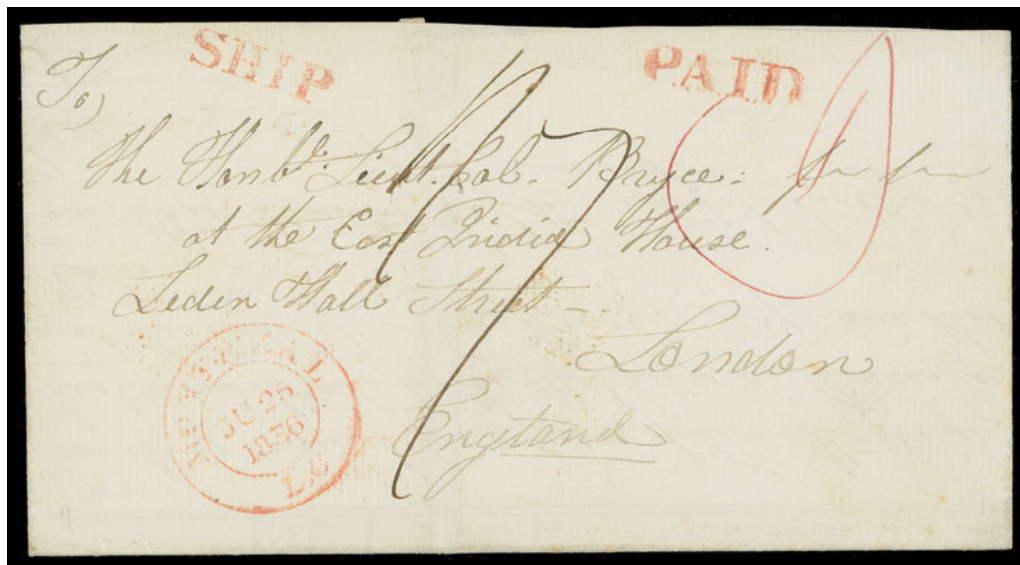 SHIP
PAID
To
The Honble. Lieut. Col. Bryce
at the East India House.
Leden Hall Street
London
England
MONTREAL
JU 28
1836
L.C
1/7